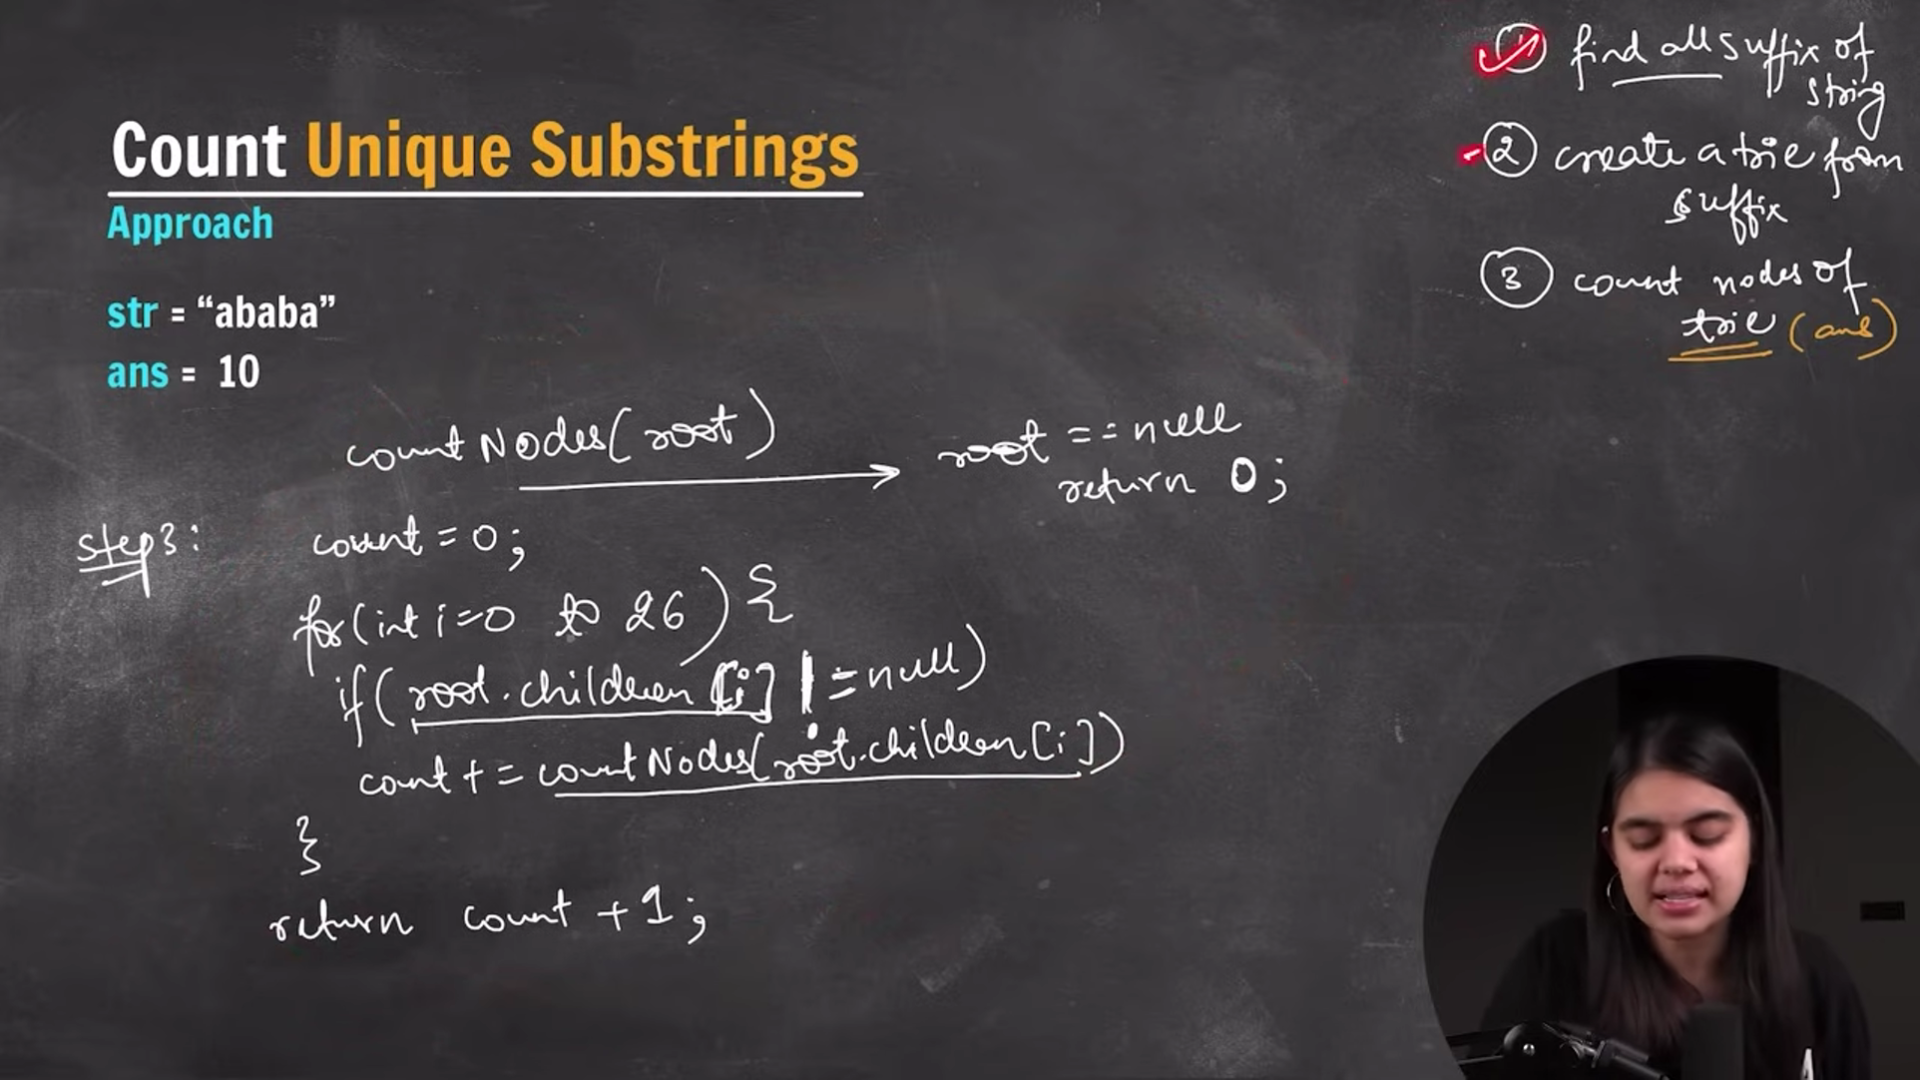 Count Unique Substrings
Approach
str = “ababa”
ans = 10
① find all suffix of
string
② create a trie from
suffix
③ count nodes of
trie (ans)
countNodes(root)
root == null
return 0;
step3:
count = 0;
for(int i=0 to 26) {
if( root.children[i] != null)
count += countNodes(root.children[i])
}
return count +1;